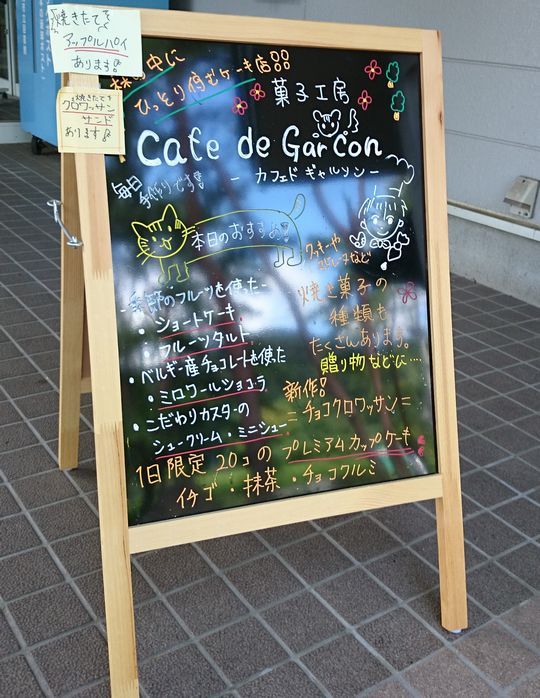 焼きたて
アップルパイ
あります!
焼きたて
クロワッサン
サンド
あります!
森の中に
ひっそり佇むケーキ店!!
菓子工房
Cafe de Garcon
- カフェドギャルソン -
毎日
手作りです!!
本日のおすすめ!
クッキーや
など
焼き菓子の
種類も
たくさんあります。
贈り物などに…
-季節のフルーツを使った-
・ショートケーキ
・フルーツタルト
・ベルギー産チョコレートを使った
・ミロワールショコラ
・こだわりカスターの
シュークリーム・ミニシュー
新作!
=チョコクロワッサン=
1日限定20コのプレミアムカップケーキ
イチゴ・抹茶・チョコクルミ